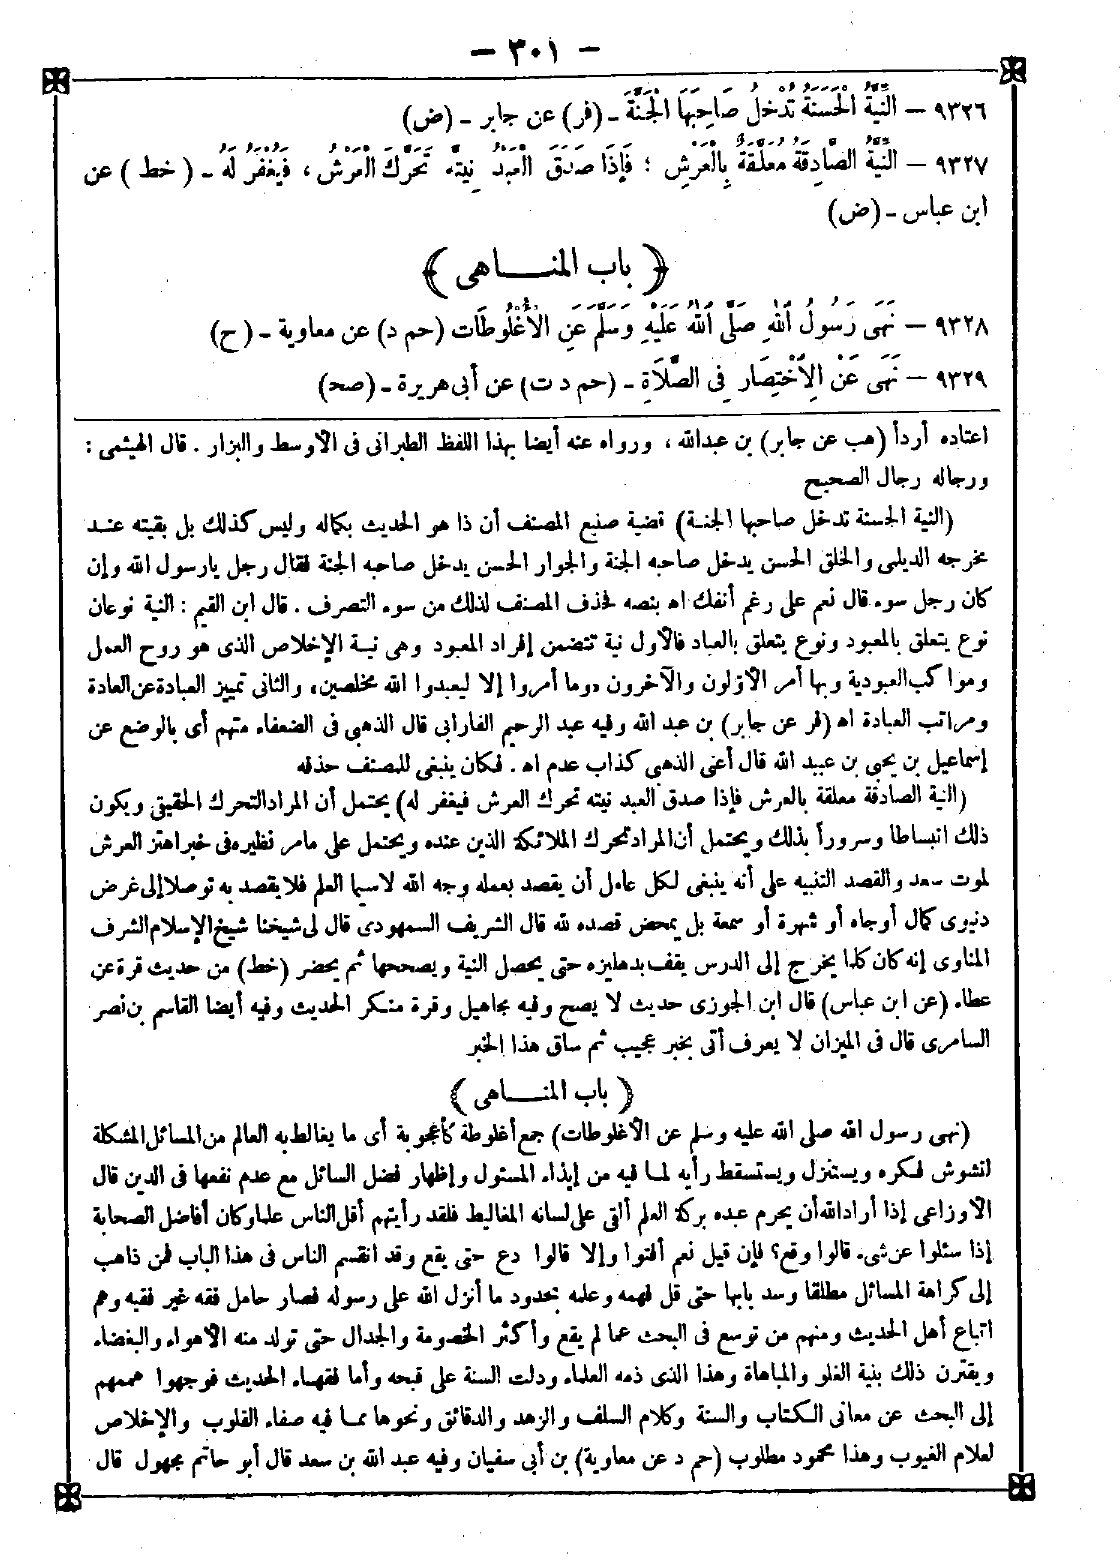 - ٣٠١ -
٩٣٢٦ - النِّيَّةُ الْحَسَنَةُ تُدْخِلُ صَاحِبَهَا الْجَنَّةَ - (فر) عن جابر - (ض)
٩٣٢٧ - النِّيَّةُ الصَّادِقَةُ مُعَلَّقَةٌ بِالْعَرْشِ؛ فَإِذَا صَدَقَ الْعَبْدُ نِيَّتَهُ تَحَرَّكَ الْعَرْشُ، فَيُغْفَرُ لَهُ - (خط) عن
ابن عباس - (ض)
﴿ باب المناهى ﴾
٩٣٢٨ - نَهَى رَسُولُ اللّٰهِ صَلَّى اللّٰهُ عَلَيْهِ وَسَلَّمَ عَنِ الْأُغْلُوطَات (حم د) عن معاوية - (ح)
٩٣٢٩ - نَهَى عَنْ الِاخْتِصَارِ فِى الصَّلَاةِ - (حم د ت) عن أبى هريرة - (صح)
اعتاده أردأ (هب عن جابر) بن عبدالله، ورواه عنه أيضا بهذا اللفظ الطبرانى فى الأوسط والبزار. قال الهيثمى:
ورجاله رجال الصحيح
(النية الحسنة تدخل صاحبها الجنة) قضية صنيع المصنف أن ذا هو الحديث بكماله وليس كذلك بل بقيته عند
مخرجه الديلمى والخلق الحسن يدخل صاحبه الجنة والجوار الحسن يدخل صاحبه الجنة فقال رجل يارسول الله وإن
كان رجل سوء قال نعم على رغم أنفك اه بنصه فحذف المصنف لذلك من سوء التصرف. قال ابن القيم: النية نوعان
نوع يتعلق بالمعبود ونوع يتعلق بالعباد فالأول نية تتضمن إفراد المعبود وهى نية الإخلاص الذى هو روح العمل
ومواكب العبودية وبها أمر الأولون والآخرون «وما أمروا إلا ليعبدوا الله مخلصين» والثانى تمييز العبادة عن العادة
ومراتب العبادة اه (فر عن جابر) بن عبد الله وفيه عبد الرحيم الفارابى قال الذهبى فى الضعفاء متهم أى بالوضع عن
إسماعيل بن يحيى بن عبيد الله قال أعنى الذهبى كذاب عدم اه. فكان ينبغى للمصنف حذفه
(النية الصادقة معلقة بالعرش فإذا صدق العبد نيته تحرك العرش فيغفر له) يحتمل أن المراد التحرك الحقيقى ويكون
ذلك انبساطا وسروراً بذلك ويحتمل أن المراد تحرك الملائكة الذين عنده ويحتمل على مامر نظيره فى خبر اهتز العرش
لموت سعد والقصد التنبيه على أنه ينبغى لكل عامل أن يقصد بعمله وجه الله لاسيما العلم فلا يقصد به توصلا إلى غرض
دنيوى كمال أوجاه أو شهرة أو سمعة بل يمحض قصده لله قال الشريف السمهودى قال لى شيخنا شيخ الإسلام الشرف
المناوى إنه كان كلما يخرج إلى الدرس يقف بدهليزه حتى يحصل النية ويصححها ثم يحضر (خط) من حديث قرة عن
عطاء (عن ابن عباس) قال ابن الجوزى حديث لا يصح وفيه مجاهيل وقرة منكر الحديث وفيه أيضا القاسم بن نصر
السامرى قال فى الميزان لا يعرف أتى بخبر عجيب ثم ساق هذا الخبر
﴿ باب المناهى ﴾
(نهى رسول الله صلى الله عليه وسلم عن الأغلوطات) جمع أغلوطة كأعجوبة أى ما يغالط به العالم من المسائل المشكلة
لتشوش فكره ويستنزل ويستسقط رأيه لما فيه من إيذاء المسئول وإظهار فضل السائل مع عدم نفعها فى الدين قال
الأوزاعى إذا أراد الله أن يحرم عبده بركة العلم ألقى على لسانه المغاليط فلقد رأيتهم أقل الناس علما وكان أفاضل الصحابة
إذا سئلوا عن شىء قالوا وقع؟ فإن قيل نعم أفتوا وإلا قالوا دع حتى يقع وقد انقسم الناس فى هذا الباب فمن ذاهب
إلى كراهة المسائل مطلقا وسد بابها حتى قل فهمه وعلمه بحدود ما أنزل الله على رسوله فصار حامل فقه غير فقيه وهم
اتباع أهل الحديث ومنهم من توسع فى البحث عما لم يقع وأكثر الخصومة والجدال حتى تولد منه الأهواء والبغضاء
ويقترن ذلك بنية الغلو والمباهاة وهذا الذى ذمه العلماء ودلت السنة على قبحه وأما فقهاء الحديث فوجهوا هممهم
إلى البحث عن معانى الكتاب والسنة وكلام السلف والزهد والدقائق ونحوها مما فيه صفاء القلوب والإخلاص
لعلام الغيوب وهذا محمود مطلوب (حم د عن معاوية) بن أبى سفيان وفيه عبد الله بن سعد قال أبو حاتم مجهول قال